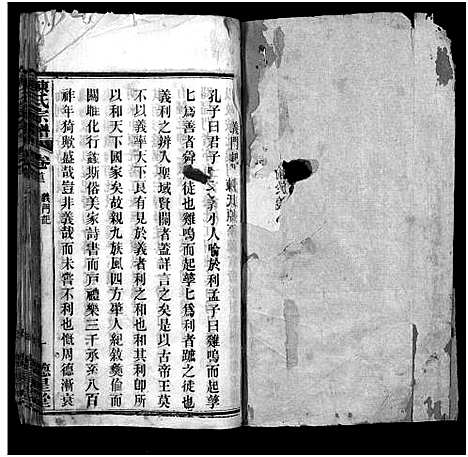 孔子曰君子喻於義小人喻於利孟子曰雞鳴而起孳
孳為善者舜之徒也雞鳴而起孳孳為利者蹠之徒也
義利之辨入聖域賢關者蓋詳言之矣是以古帝王莫
不以義率天下良有見於義者利之和也和其利即所
以和天下國家矣故親九族風四方舉人紀敘彝倫而
關雎化行麟斯俗美家詩書而戶禮樂三千承至八百
祥年猗歟盛哉豈非義哉而未嘗不利也慨周德漸衰
陳氏宗譜
卷首
義門記
一
德星堂